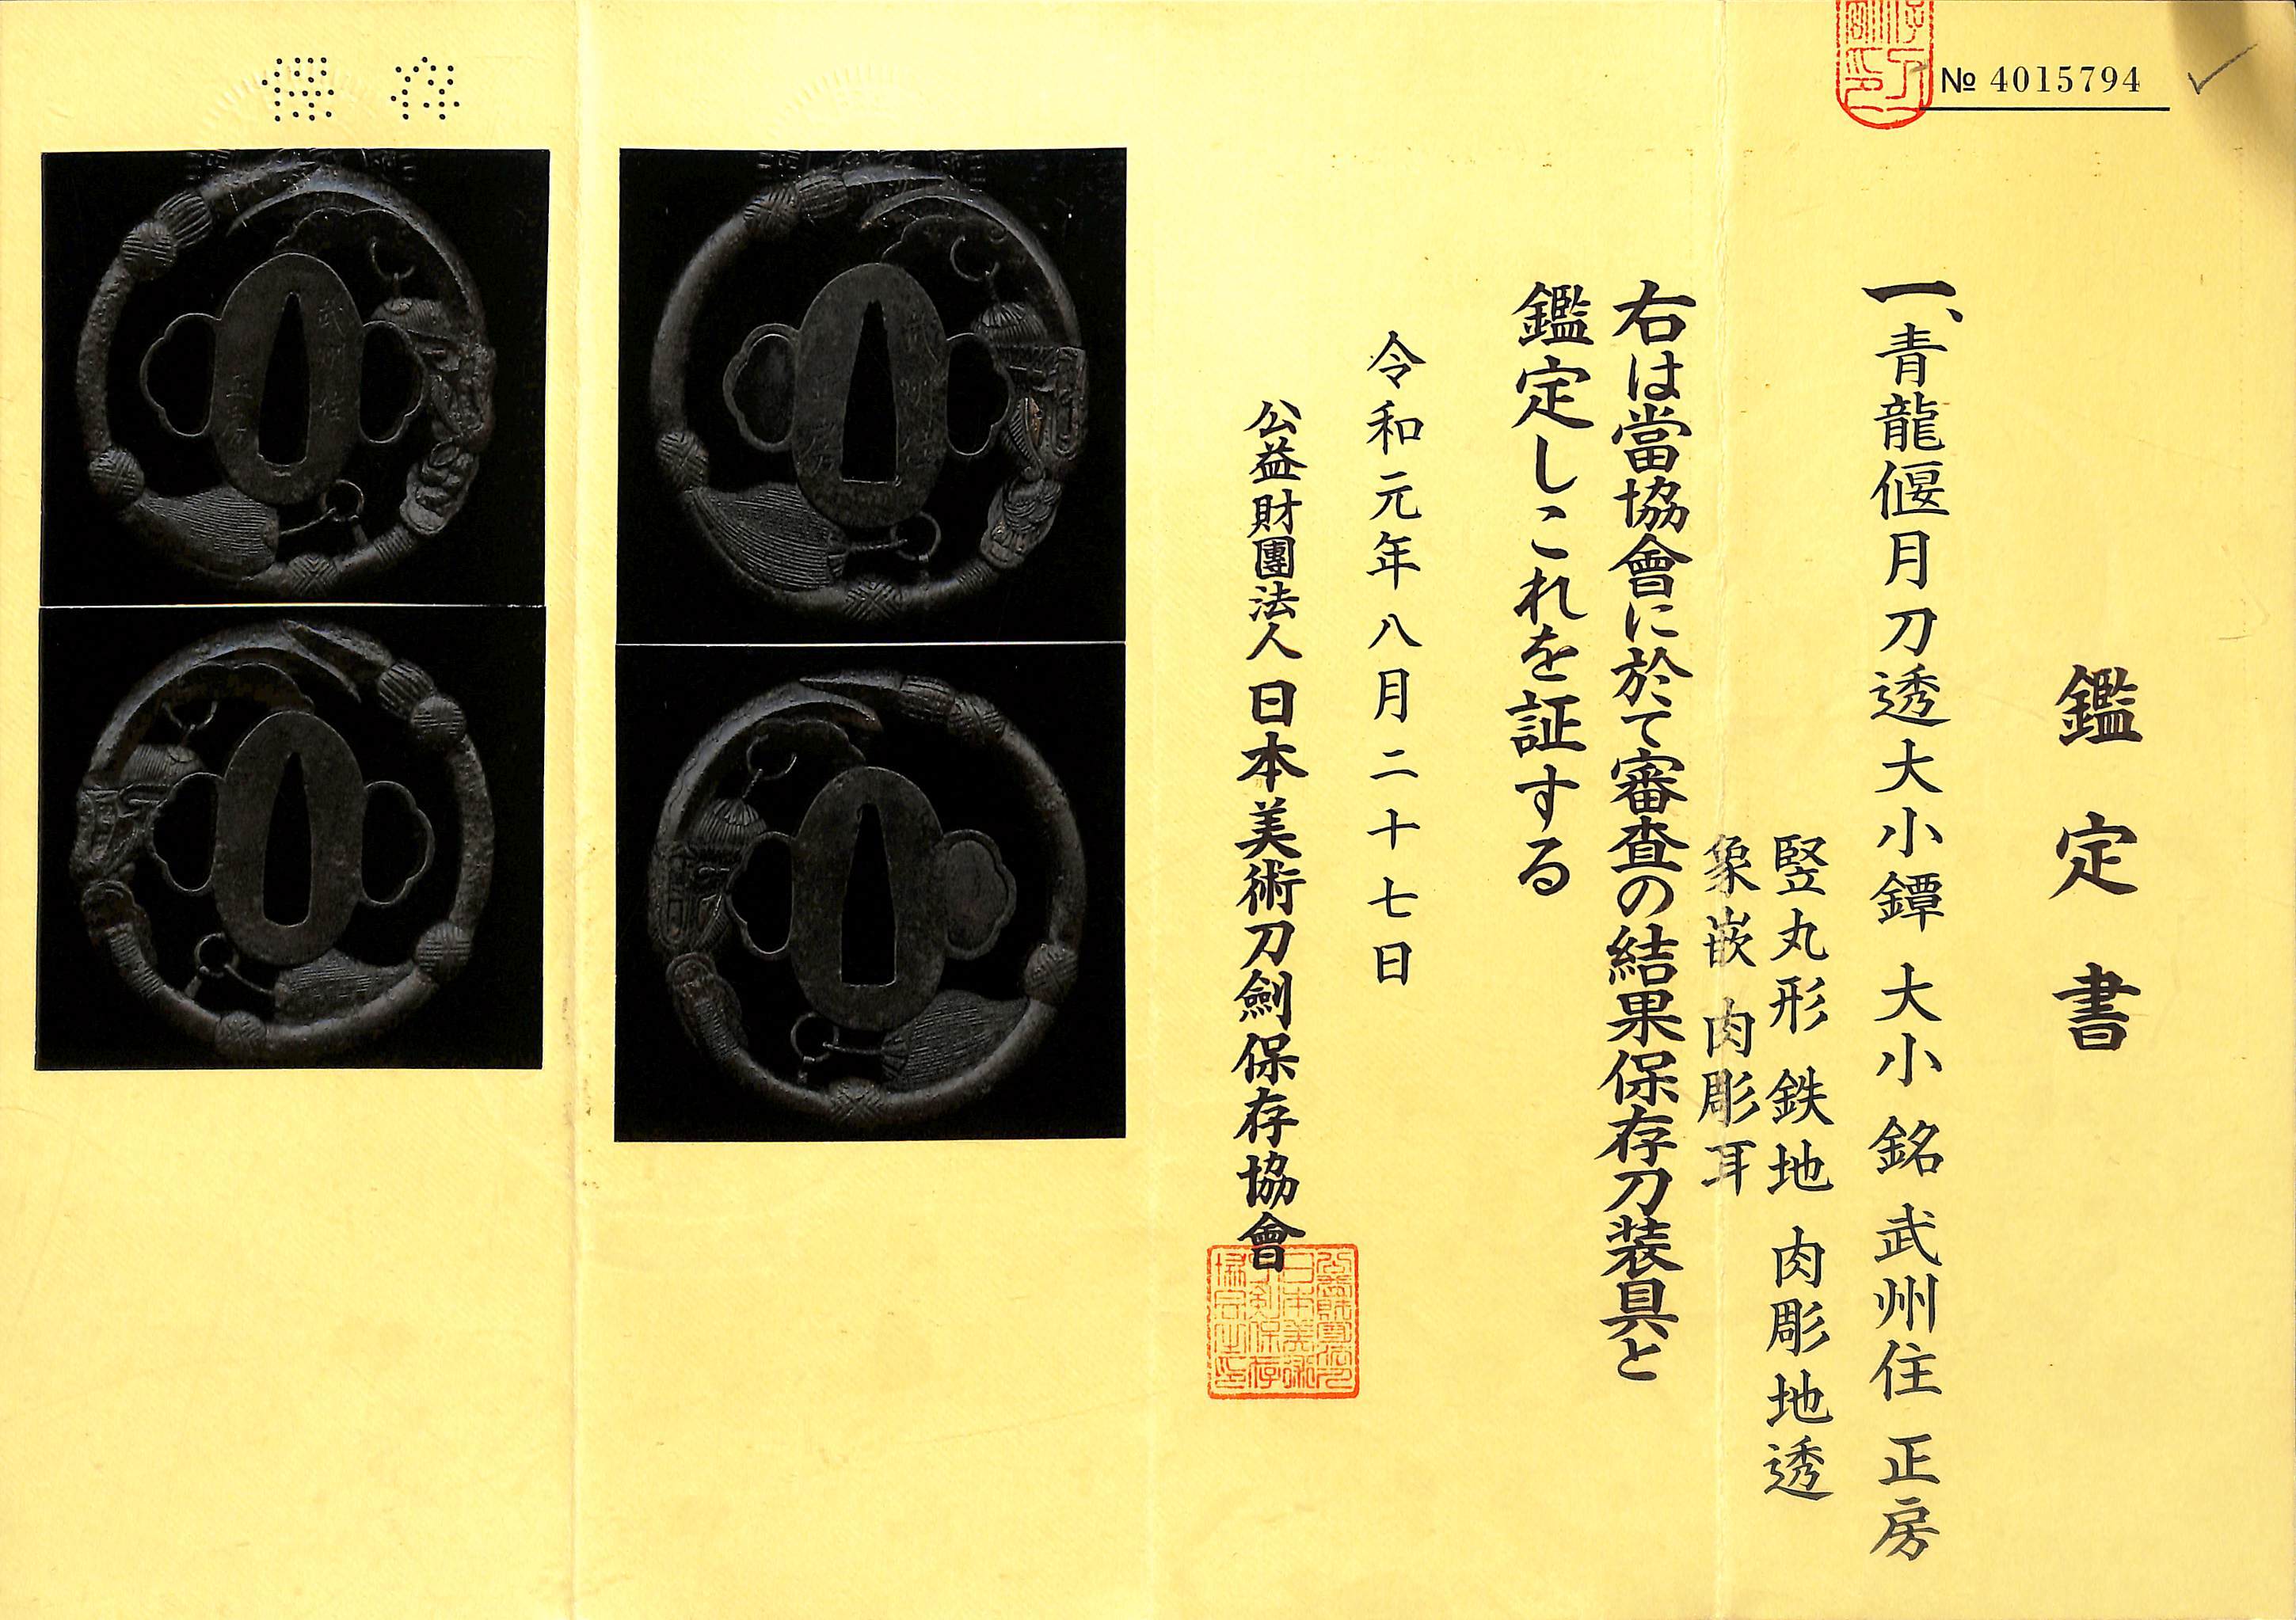 № 4015794
鑑定書
一、青龍偃月刀透大小鐔 大小 銘 武州住 正房
竪丸形 鉄地 肉彫地透
象嵌 肉彫耳
右は當協會に於て審査の結果保存刀装具と
鑑定しこれを証する
令和元年八月二十七日
公益財團法人 日本美術刀劍保存協會
保存